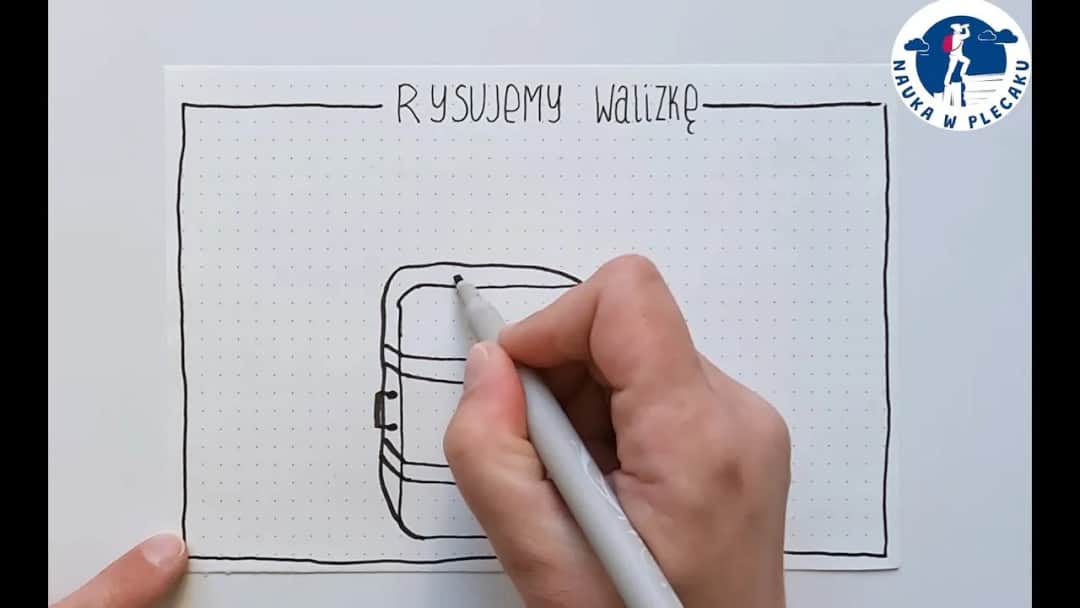 RYSUJEMY WALIZKĘ
NAUKA W PLECAKU